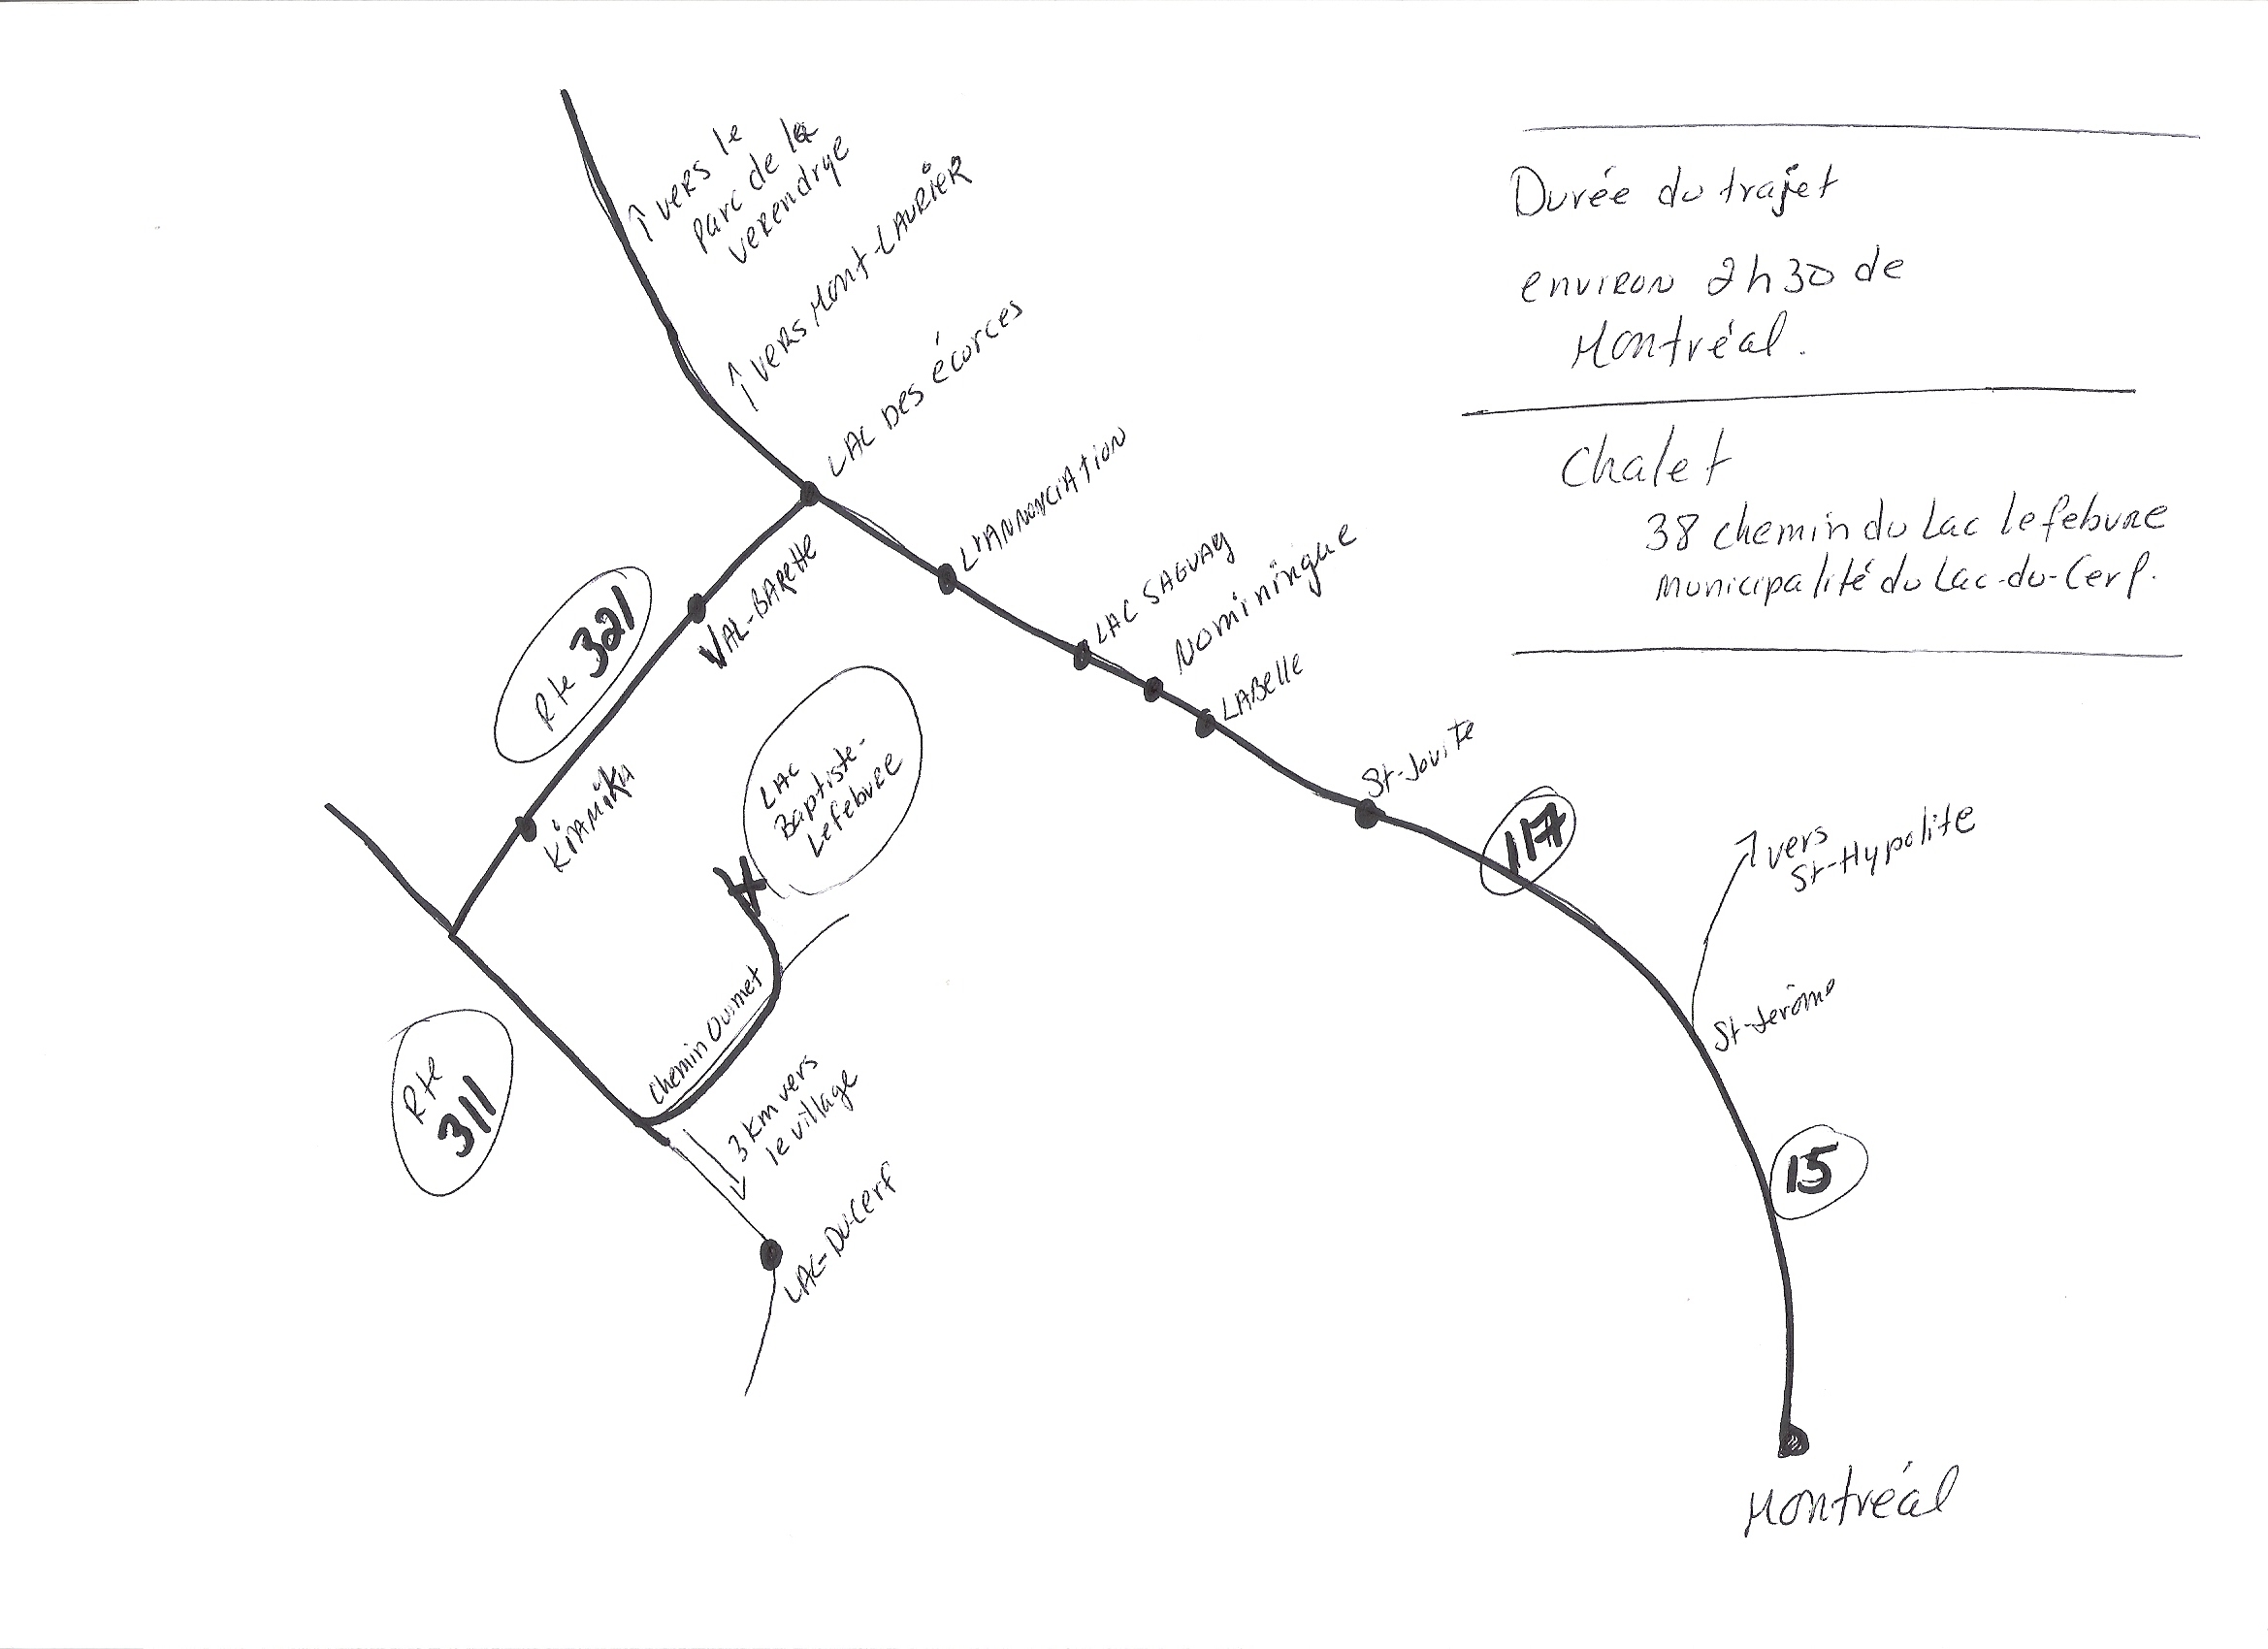 ↑ vers le
parc de la
verendrye
↑ vers Mont-Laurier
Lac des écorces
L'Annonciation
Lac Saguay
Nominingue
Labelle
St-Jovite
117
↑ vers
St-Hypolite
St-Jerôme
15
Montréal
Val-Barette
Rte 321
Kiamika
Lac
Baptiste-
Lefebvre
Chemin Ouimet
3 km vers
le village
Rte
311
Lac-Ducerf
Durée du trajet
environ 2h30 de
Montréal.
Chalet
38 chemin du Lac lefebvre
Municipalité du Lac-du-Cerf.